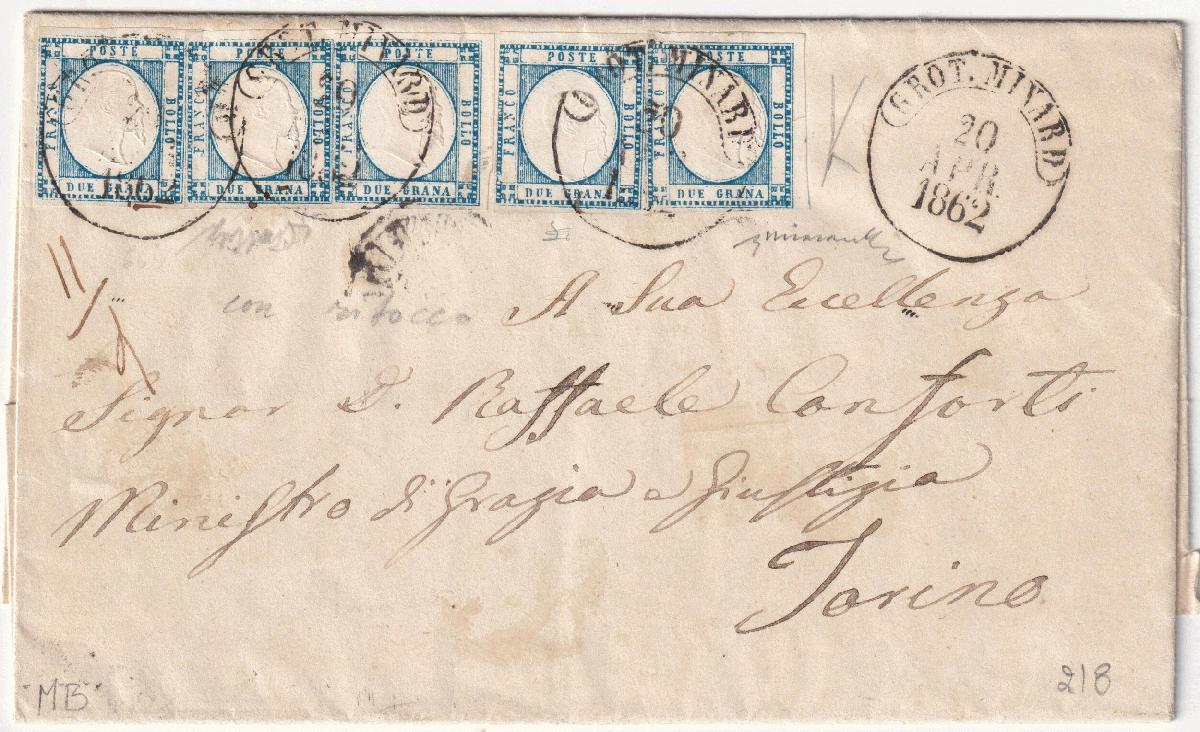 POSTE POSTE POSTE POSTE POSTE
FRANCO BOLLO FRANCO BOLLO FRANCO BOLLO FRANCO BOLLO FRANCO BOLLO
DUE GRANA DUE GRANA DUE GRANA DUE GRANA DUE GRANA
1862
GROT. MINARD
20
APR
1862
K
con ritocco
A Sua Eccellenza
Signor D. Raffaele Conforti
Ministro di Grazia e Giustizia
Torino
MB
218